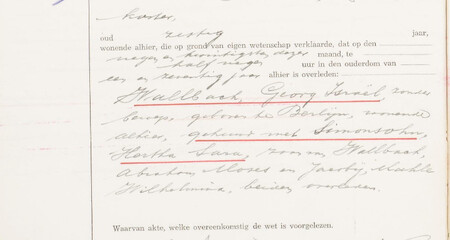 koster,
oud zestig jaar,
wonende alhier, die op grond van eigen wetenschap verklaarde, dat op den
negen en twintigsten dezer maand, te
half negen uur in den ouderdom van
een en zeventig jaar alhier is overleden:
Wallbach, Georg Israël, zonder
beroep, geboren te Berlijn, wonende
alhier, gehuwd met Simonsohn,
Hertha Sara, zoon van Wallbach,
Abraham Moses en Jacoby, Mathilde
Wilhelmina, beiden overleden.
Waarvan akte, welke overeenkomstig de wet is voorgelezen.